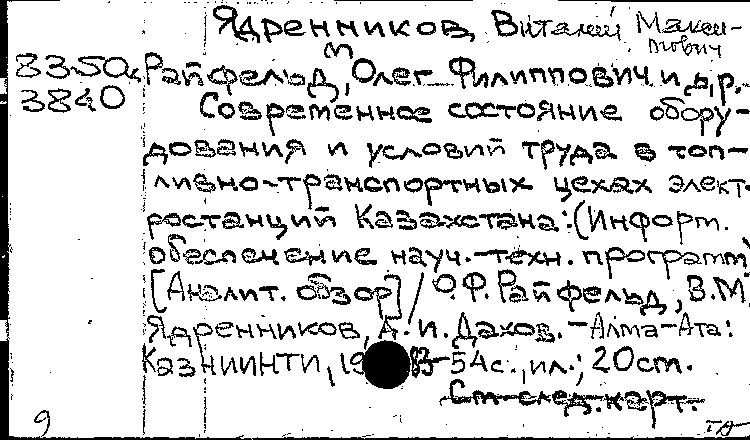 Ядренников, Виталий Макси-
мович
83-50к Райфельд, Олег Филиппович и др.
3840 Современное состояние обору-
дования и условий труда в топ-
ливно-транспортных цехах элект-
ростанций Казахстана: (Информ.
обеспечение науч.-техн. программ)
[Аналит. обзор] / О.Ф. Райфельд, В.М.
Ядренников, А.И. Дахов. - Алма-Ата:
КазНИИНТИ, 1983 - 54 с., ил.; 20 см.
См след. карт.
9